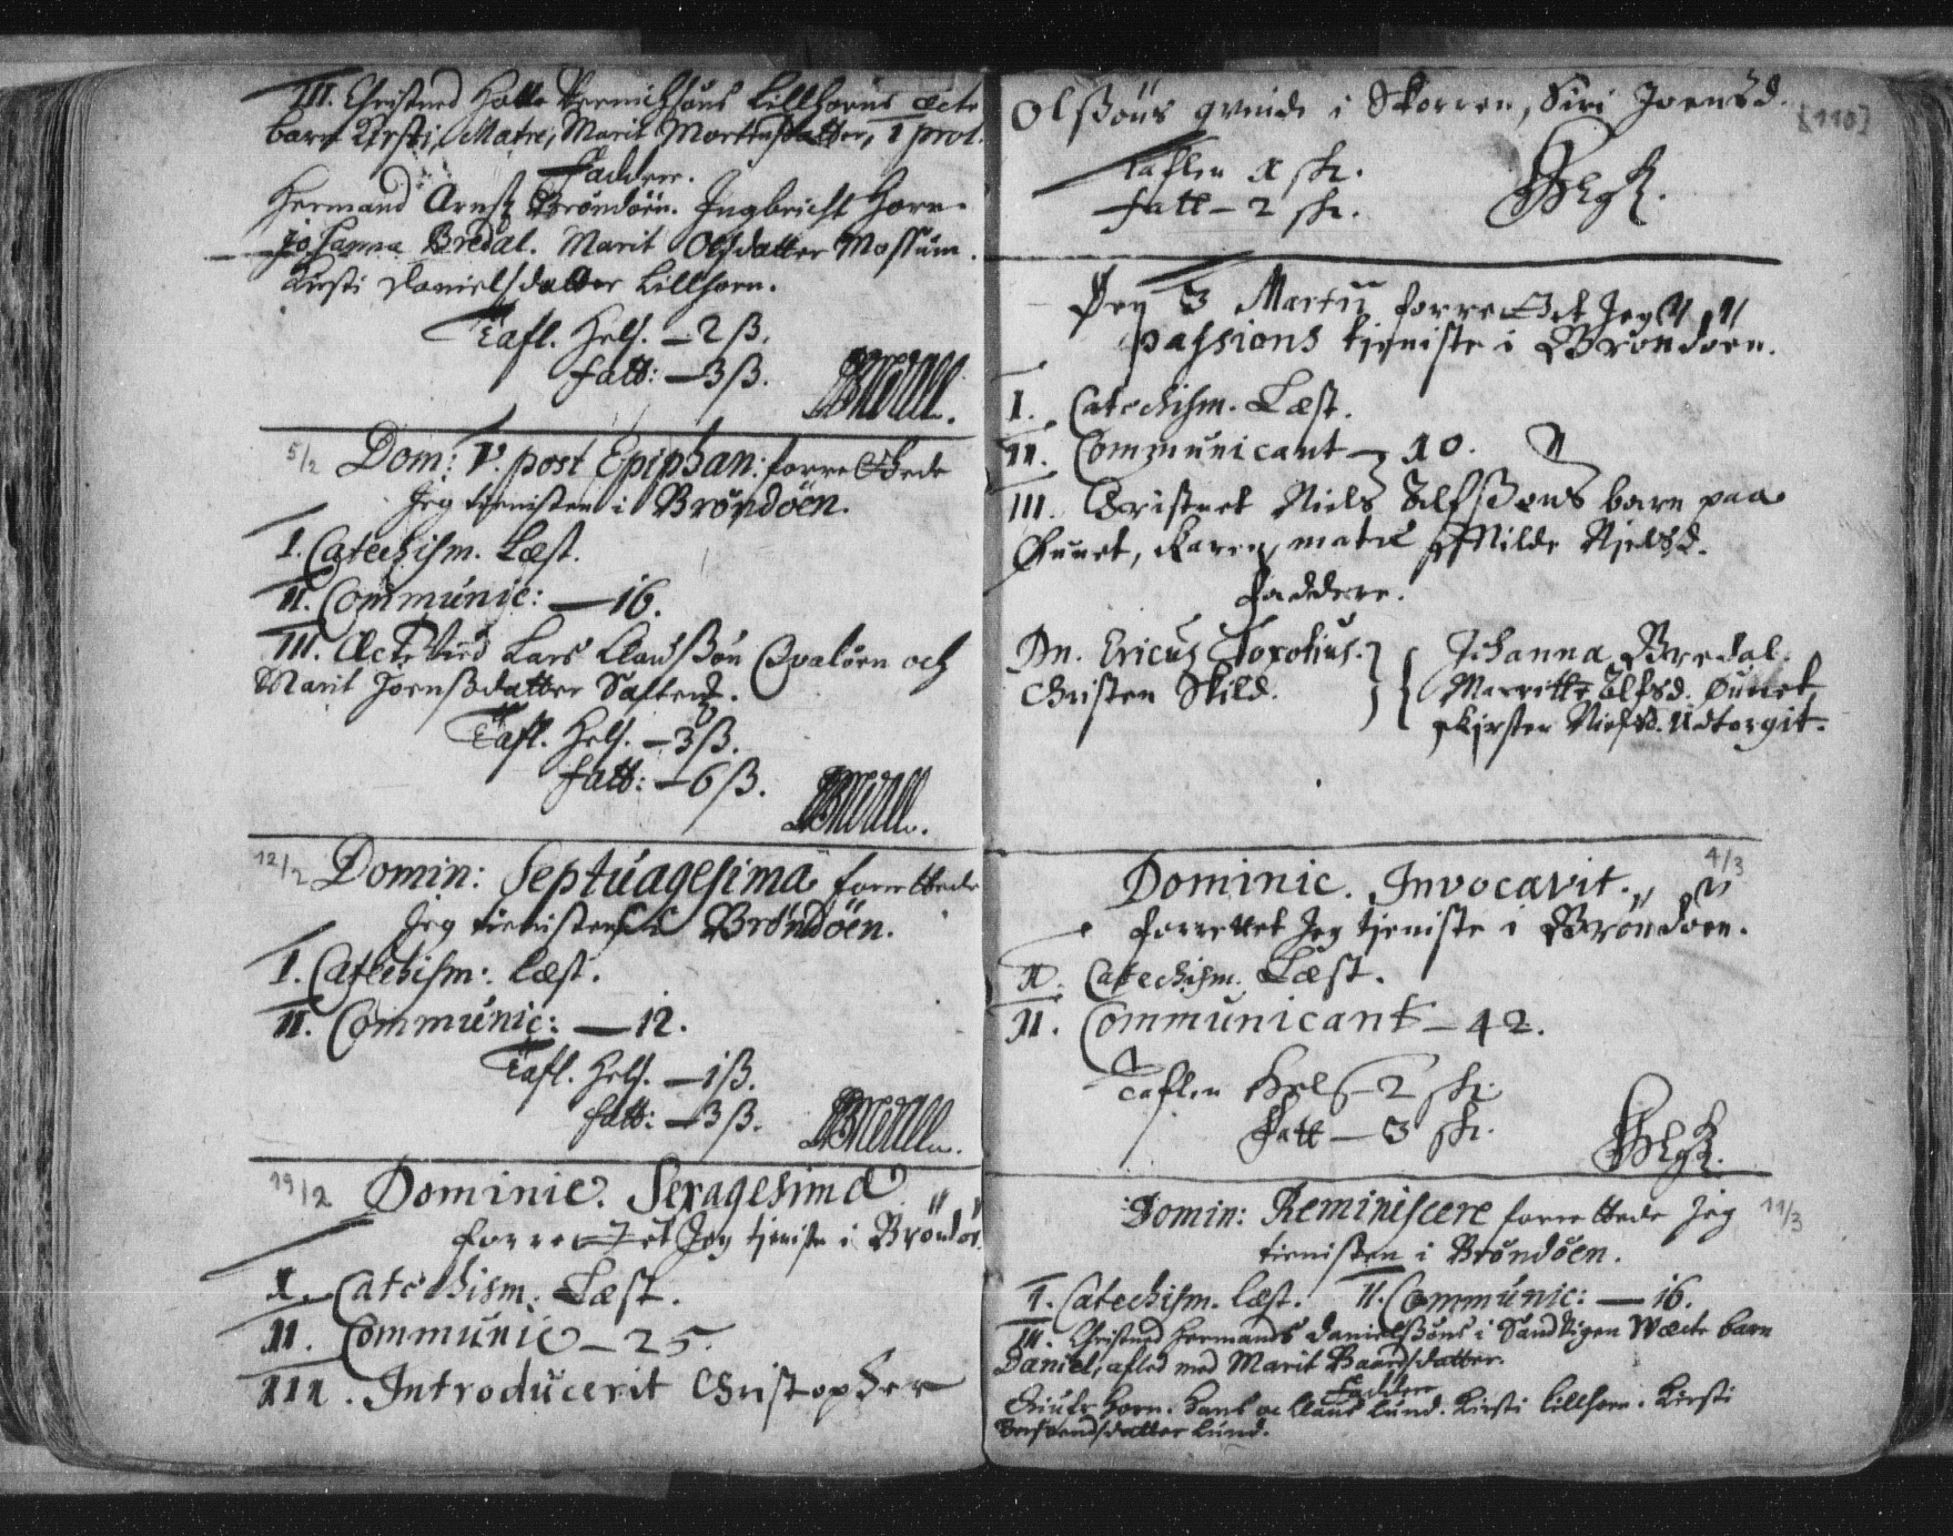 III. Christned Halle Bernichsöns Lillhorns ecte
barn Kirsti, Matre, Marit Mortensdatter, 1 prol.
Faddere.
Hermand Arnsz Bröndöen. Ingbricht Horn.
Johanna Bredal. Marit Olsdatter Mossum.
Kirsti Danielsdatter Lillhorn.
Tafl. Hels. — 2 ß.
fatt: — 3 ß.
5/2 Dom: V. post Epiphan: forrettede
Jeg tienisten i Bröndöen.
I. Catechism. Læst.
II. Communic: — 16.
III. Ecte Vied Lars Clausßön Qvalöen och
Marit Joensdatter
Tafl. Hels. — 3 ß.
fatt: — 6 ß.
12/2 Domin: Septuagesima forrettede
Jeg tienisten i Bröndöen.
I. Catechism: Læst.
II. Communic: — 12.
Tafl. Hels. — 1 ß.
fatt: — 3 ß.
19/2 Dominic. Sexagesima
forrettet Jeg tieniste i Bröndöe
I. Catechism. Læst.
II. Communic — 25.
III. Introducerit Christopher
Olßöns qvinde i Skorren, Siri Joensd.
[110]
Taflen 1 sk.
fatt — 2 sk.
Den 3 Martij forrettet Jeg
passions tjeniste i Bröndöen.
I. Catechism. Læst.
II. Communicant — 10.
III. Christnet Niels Alfßöns barn paa
Øuuet, Karen, matre Milde Nielsd.
Faddere.
Dn. Ericus Toxotius.
Christen Skild.
Johanna Bredal.
Marritte Alfsd. Øuuet
Kirsten Nielsd. Udtorgit.
4/3
Dominic. Invocavit.
forrettet Jeg tjeniste i Bröndöen.
I. Catechism. Læst.
II. Communicant — 42.
Taflen Hels — 2 sk.
Fatt — 3 sk.
Domin: Reminiscere forrettede Jeg 11/3
tienisten i Bröndöen.
I. Catechism. Læst. II. Communic: — 16.
III. Christned Hermands Danielßöns i Sandvigen Wecte barn
Daniel, afled med Marit Baardsdatter.
Faddere
Horn. Hans oc Claus Lund. Kirsti Lillhorn. Kirsti
datter Lund.